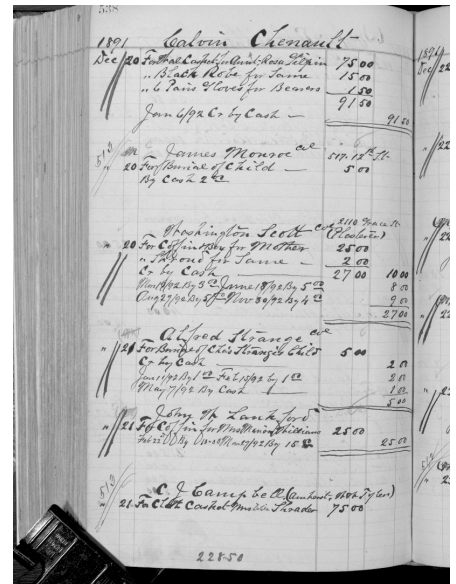 538
1891 Calvin Chenault
Dec 20 For Wal Casket for Aunt Rosa Gilpin 75 00
" Black Robe for Same 15 00
" 6 Pairs Gloves for Bearers 1 50
91 50
Jan 6/92 Cr by Cash — 91 50
513
James Monroe col 517. 12th St.
" 20 For Burial of Child — 5 00
By Cash 2 00
Washington Scott col 2110 Grace St
(Plasterer)
" 20 For Coffin & Box for Mother 25 00
" Shroud for Same — 2 00
Cr by Cash 27 00 10 00
June 18/92 By 5 00 8 00
Aug 27/92 By 5 00 Nov 30/92 By 4 00 9 00
27 00
Alfred Strange col
" 21 For Burial of Chas Strange's Child 5 00
Cr by Cash 2 00
by 1 00 Feb 13/92 by 1 00 2 00
May 7/92 By Cash 1 00
5 00
John W Lankford
" 21 For Coffin for Mrs Williams 25 00
By 15 00 25 00
513
C. J. Campbell (Amherst
" 21 For Casket Shrader 75 00
228 50
1891
Dec 22
" 22